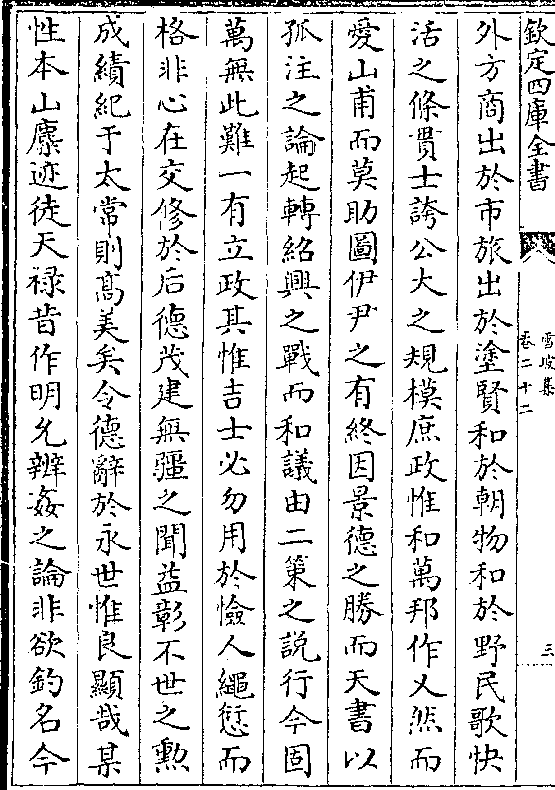 欽定四庫全書
雪坡集
卷二十二
三
外方商出於市旅出於塗賢和於朝物和於野民歌快
活之條貫士誇公大之規模庶政惟和萬邦作乂然而
愛山甫而莫助圖伊尹之有終因景德之勝而天書以
孤注之論起轉紹興之戰而和議由二策之説行今固
萬無此難一有立政其惟吉士必勿用於憸人繩愆而
格非心在交修於后德茂建無疆之聞益彰不世之勲
成績紀于太常則髙美矣令德辭於永世惟良顯哉某
性本山麋迹徒天禄昔作明允辨姦之論非欲釣名今